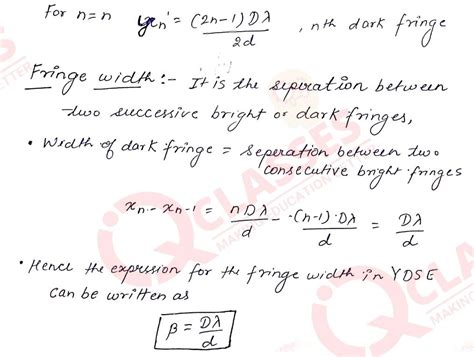 For n=n yn' = (2n-1)Dλ / 2d , nth dark fringe
Fringe width :- It is the seperation between
two successive bright or dark fringes,
• Width of dark fringe = seperation between two
consecutive bright fringes
xn - xn-1 = nDλ/d - (n-1)·Dλ/d = Dλ/d
• Hence the expression for the fringe width in YDSE
can be written as
β = Dλ/d
IQ CLASSES